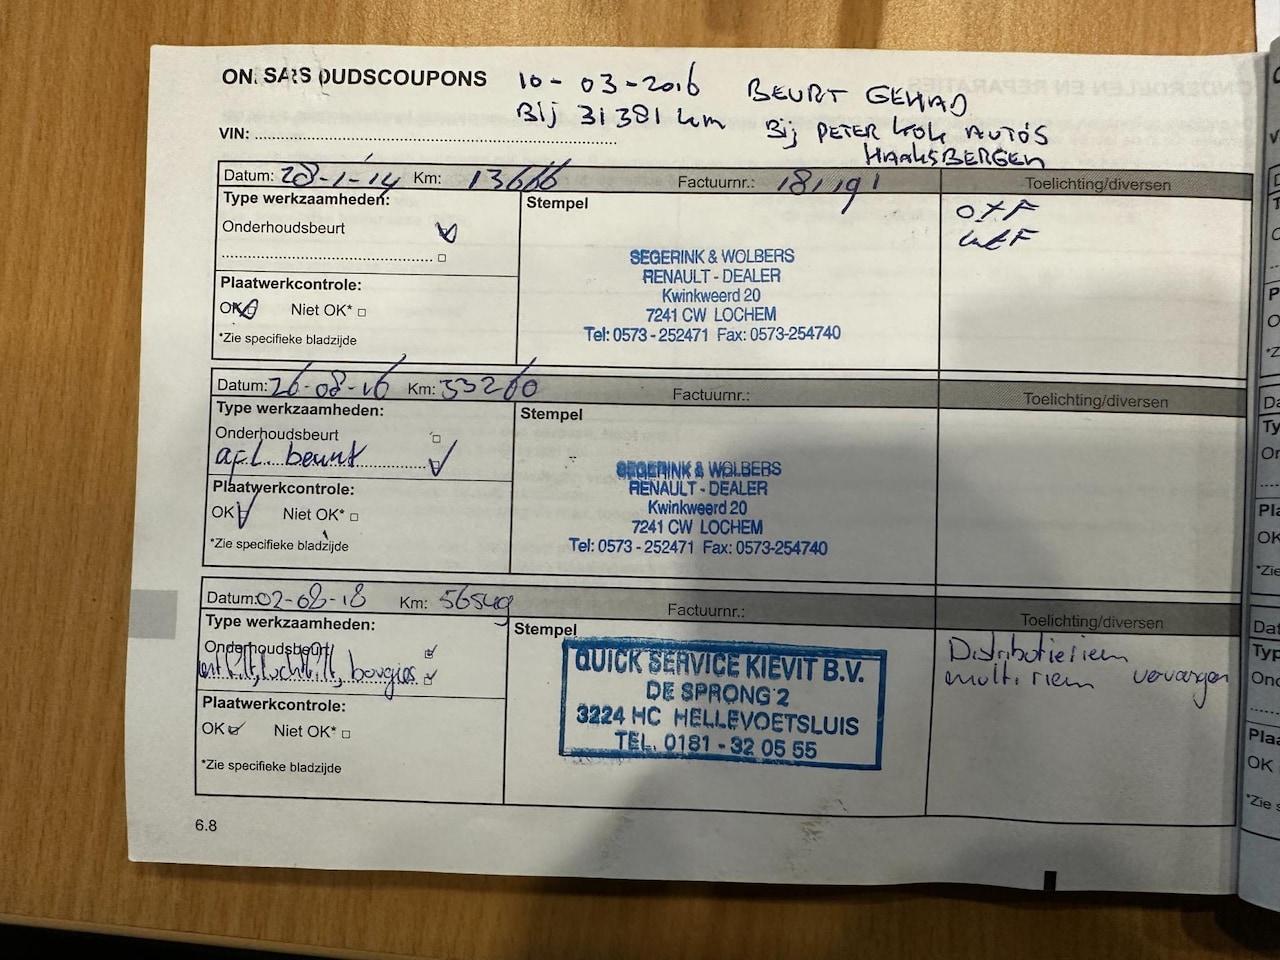 OUDSCOUPONS
10-03-2016
Bij 31381 km
BEURT GEHAD
Bij PETER KOK AUTO'S
HAAKSBERGEN
VIN:
Datum: 28-1-14 Km: 13666 Factuurnr.: 181191 Toelichting/diversen
Type werkzaamheden:
Onderhoudsbeurt
Plaatwerkcontrole:
OK Niet OK*
*Zie specifieke bladzijde
Stempel
SEGERINK & WOLBERS
RENAULT - DEALER
Kwinkweerd 20
7241 CW LOCHEM
Tel: 0573 - 252471 Fax: 0573-254740
Datum: 26-08-16 Km: 33260 Factuurnr.: Toelichting/diversen
Type werkzaamheden:
Onderhoudsbeurt
afl. beurt
Plaatwerkcontrole:
OK Niet OK*
*Zie specifieke bladzijde
Stempel
SEGERINK & WOLBERS
RENAULT - DEALER
Kwinkweerd 20
7241 CW LOCHEM
Tel: 0573 - 252471 Fax: 0573-254740
Datum: 02-08-18 Km: 56549 Factuurnr.: Toelichting/diversen
Type werkzaamheden:
Onderhoudsbeurt
luchtfilt, bougies
Plaatwerkcontrole:
OK Niet OK*
*Zie specifieke bladzijde
Stempel
QUICK SERVICE KIEVIT B.V.
DE SPRONG 2
3224 HC HELLEVOETSLUIS
TEL. 0181 - 32 05 55
Distributieriem
multiriem vervangen
6.8